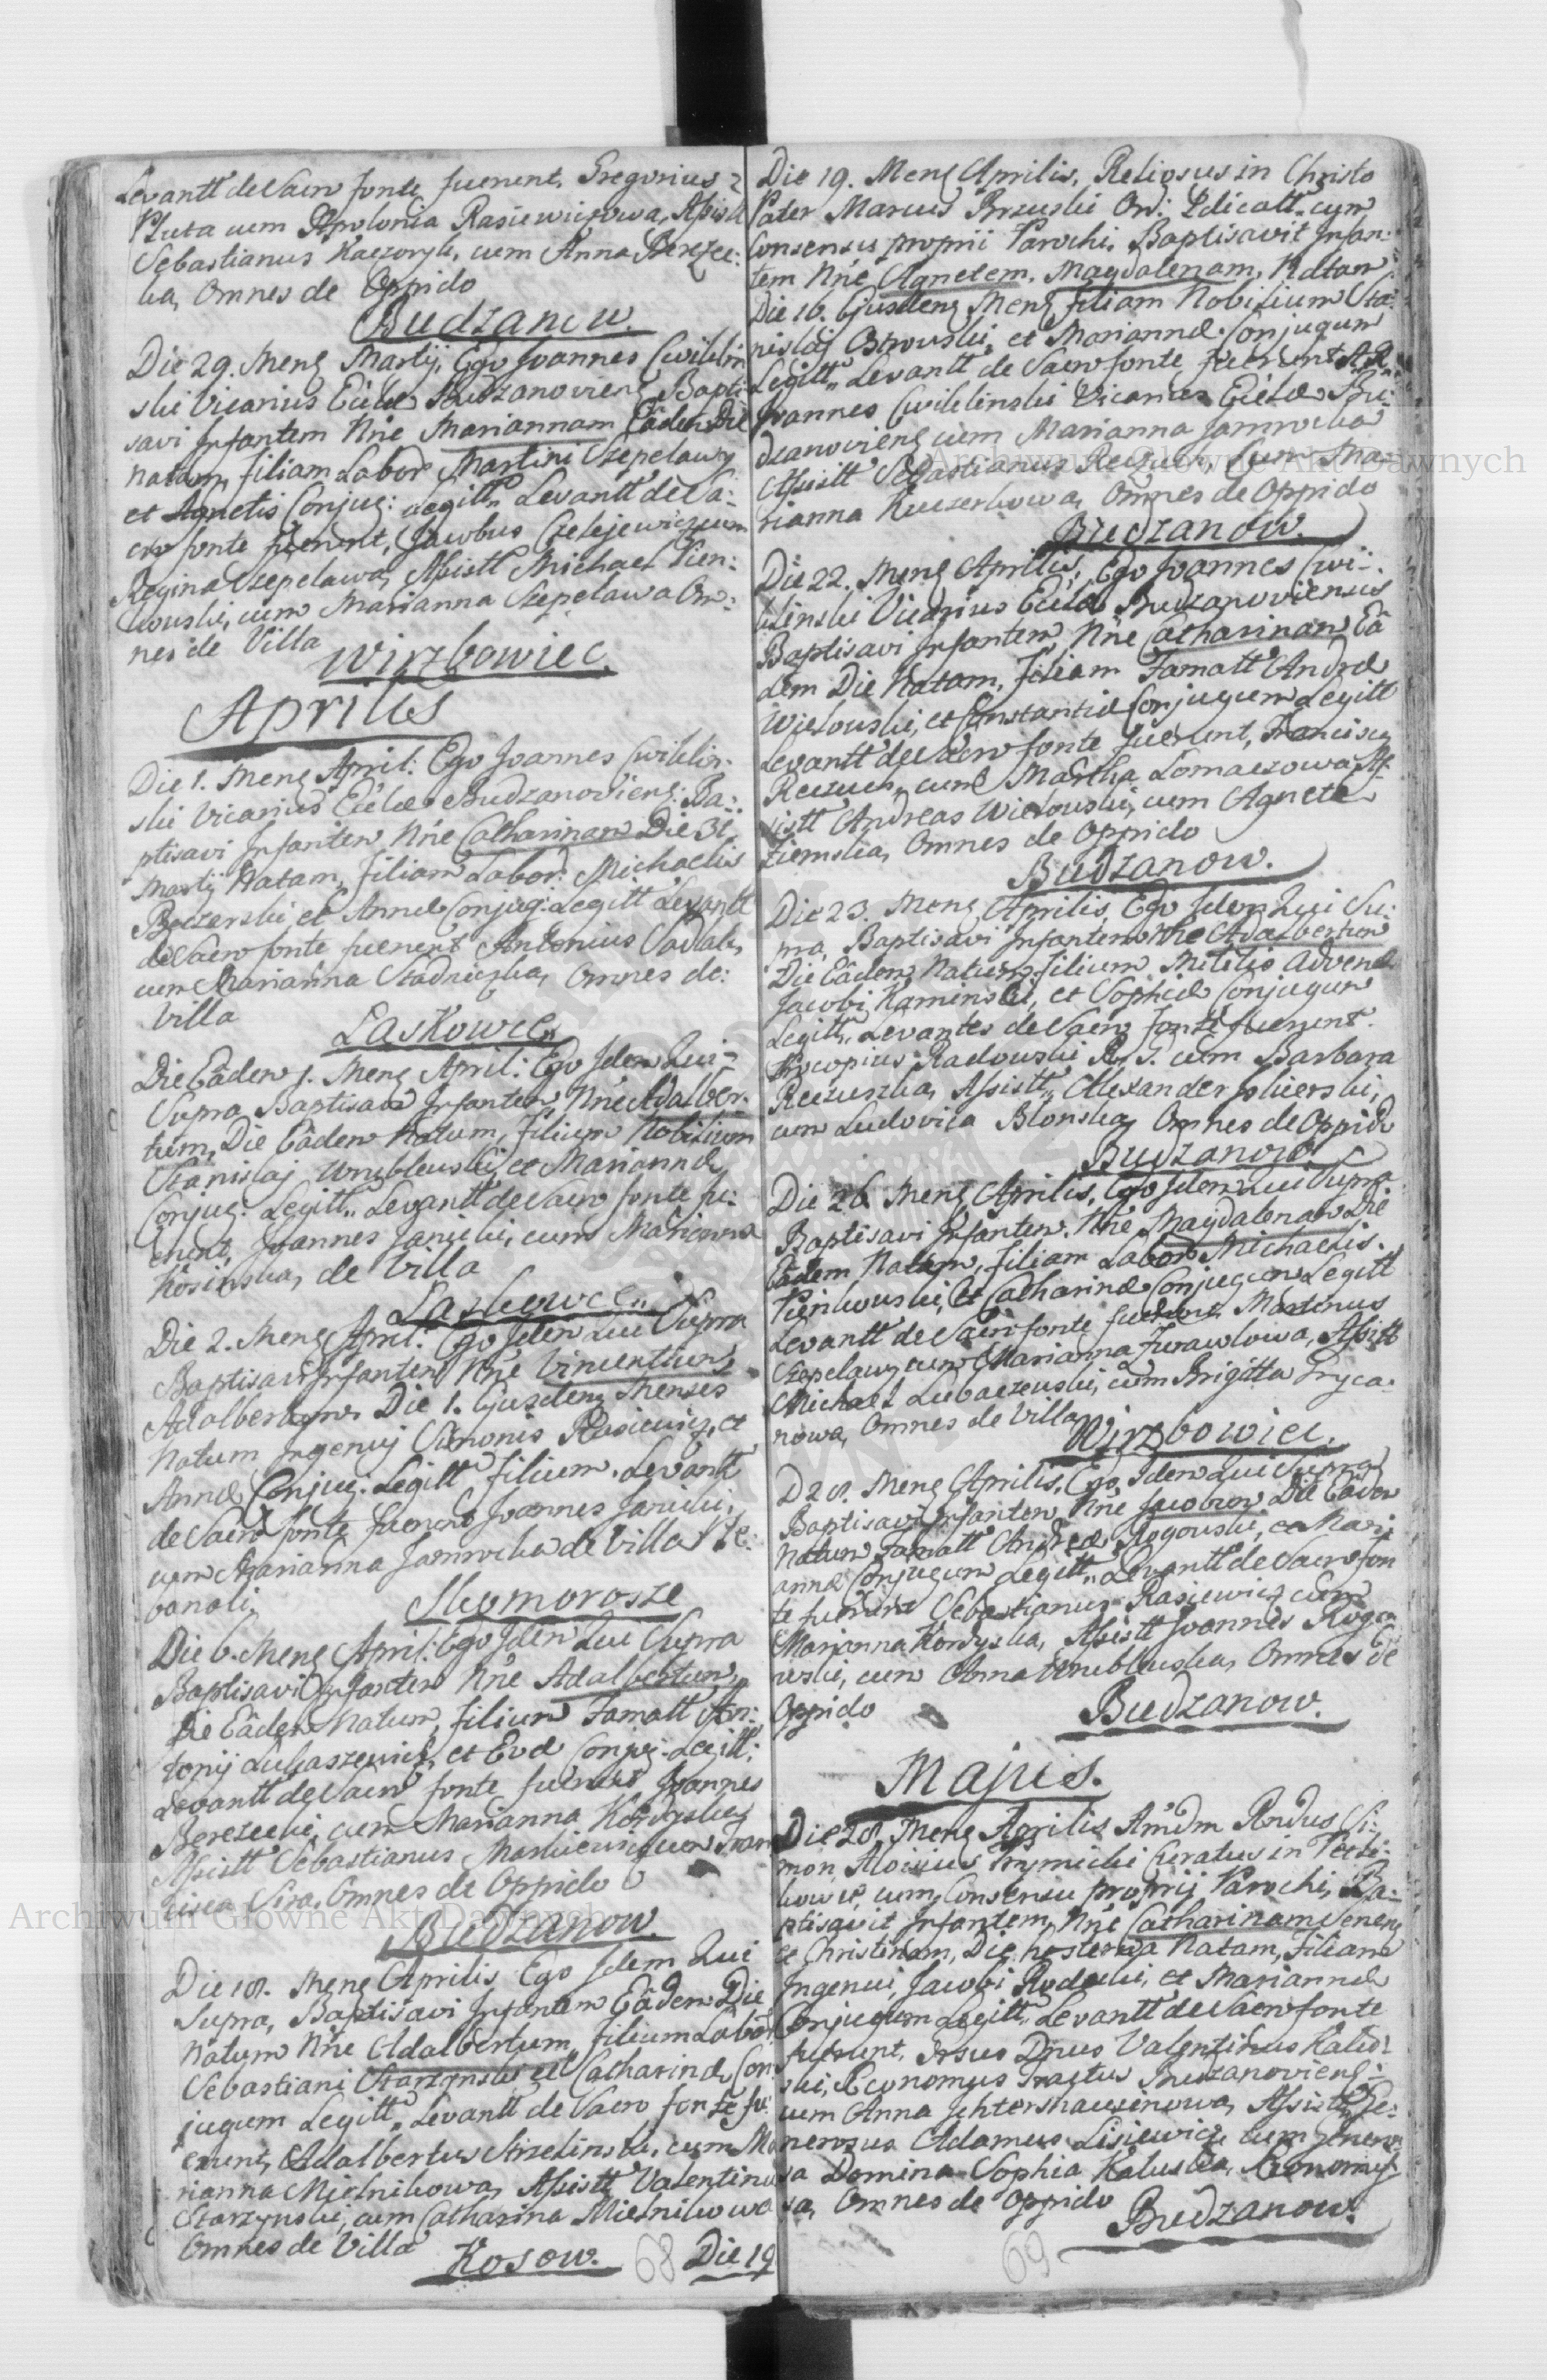 Levantt de Sacro fonte fuerunt, Gregorius
Pluta cum Apolonia Rasiewiczowa, Assistt
Sebastianus Kaczoryk, cum Anna Berezec:
ka, Omnes de Oppido
Budzanow.
Die 29. Mens Martij, Ego Joannes Cwiklin
ski Vicarius Eccle Budzanoviens Bapti:
savi Infantem Nne Mariannam Eâdem Die
natam, filiam Labor Martini Szepelawy
et Agnetis Conjug: Legitt,, Levantt de Sa:
cro fonte fuerunt, Jacobus Czelejewicz cum
Regina Szepelawa, Assistt Michael Pien:
kowski, cum Marianna Szepelawa Om:
nes de Villa
Wirzbowiec.
Aprilis
Die 1. Mens April: Ego Joannes Cwiklin:
ski Vicarius Eccle Budzanoviens: Ba:
ptisavi Infantem Nne Catharinam Die 31.
Martij Natam, filiam Labor: Michaelis
et Annæ Conjug: Legitt Levantt
de Sacro fonte fuerunt Antonius Sadlak,
cum Marianna Stadnicska, Omnes de:
Villa
Laskowce,,
Die Eâdem 1. Mens April: Ego Idem Qui:
Supra Baptisavi Infantem Nne Adalber:
tum, Die Eâdem Natum, filium Nobilium
Stanislaj Wrublewski, et Mariannæ
Conjug: Legitt,, Levantt de Sacro fonte fu:
erunt, Joannes Janicki, cum Marianna
Kosinska, de Villa
Laskowce,,
Die 2. Mens April: Ego Idem Qui Supra
Baptisavi Infantem Nne Vincentium
Adalbertum, Die 1. Ejusdem Menses
Natum Ingenuj Simonis Rasiewicz, et
Annæ Conjug: Legitt filium. Levantt
de Sacro fonte fuerunt Joannes Janicki,
cum Marianna Jamrocka de Villa
Skomorosze
Die 6. Mens April: Ego Idem Qui Supra
Baptisavi Infantem Nne Adalbertum,
Die Eâdem Natum, filium Famatt An:
tonij Lukaszewicz, et Evæ Conjug: Legitt:
Levantt de Sacro fonte fuerunt Joannes
Berezecki, cum Marianna Kordyska,
Assistt Sebastianus Markiewicz cum Fran
cisca Sira, Omnes de Oppido
Budzanow.
Die 18. Mens Aprilis Ego Idem Qui
Supra, Baptisavi Infantem Eâdem Die
Natum Nne Adalbertum, filium Labor
Sebastiani Starzynski et Catharinæ Con
jugum Legitt,, Levantt de Sacro fonte fu:
erunt, Adalbertus Strzelinski, cum Ma
rianna Mielnikowa, Assistt Valentinus
Starzynski, cum Catharina Mielnikowa
Omnes de Villa
Kosow. 68 Die 19
Die 19. Mens Aprilis, Religosus in Christo
Pater Marcus Brzuski Ord: Pdicatt,, cum
Consensu proprii Parochi, Baptisavit Infan:
tem Nne Agnetem, Magdalenam, Natam
Die 16. Ejusdem Mens filiam Nobilium Sta:
nislaj Ostrowski, et Mariannæ Conjugum
Legitt,, Levantt de Sacro fonte fuerunt A. R.
Joannes Cwiklinski Vicarius Eccle Bu:
dzanoviens cum Marianna Jamrocka
Assistt Sebastianus Reczuch, Cum Ma:
rianna Kuczerkowa, Omnes de Oppido
Budzanow.
Die 22. Mens Aprilis, Ego Joannes Cwi:
klinski Vicarius Eccle Budzanoviensis
Baptisavi Infantem, Nne Catharinam Eâ
dem Die Natam, filiam Famatt Andreæ
Wielowski, et Constantiæ Conjugum Legitt
Levantt de Sacro fonte fuerunt, Franciscus
Reczuch,, cum Martha Lomaczowa, As
sistt Andreas Wielowski, cum Agnete
Ziemska, Omnes de Oppido
Budzanow.
Die 23. Mens Aprilis, Ego Idem Qui Su:
pra, Baptisavi Infantem Nne Adalbertum
Die Eâdem Natum, filium Militis Advenæ
Jacobi Kaminski, et Sophiæ Conjugum
Legitt,, Levantes de Sacro fonte fuerunt.
Procopius Radowski R. G. cum Barbara
Reczuska, Assistt,, Alexander
cum Ludovica Blonska, Omnes de Oppido
Budzanow
Die 26. Mens Aprilis, Ego Idem Qui Supra
Baptisavi Infantem Nne Magdalenam Die
Eâdem Natam, filiam Labor Michaelis
Pienkowski, et Catharinæ Conjugum Legitt
Levantt de Sacro fonte fuerunt Martinus
Szepelawy cum Marianna Zurawlowa, Assistt
Michael Lubaczewski, cum Brigitta Gryca:
nowa, Omnes de Villa
Wirzbowiec.
D 28. Mens Aprilis, Ego Idem Qui Supra
Baptisavi Infantem Nne Jacobum Die Eâdem
Natum Famatt Andreæ Rogowski, et Mari
annæ Conjugum Legitt,, Levantt de Sacro fon
te fuerunt Sebastianus Rasiewicz cum
Marianna Kordyska, Assistt Joannes Rogo
wski, cum Anna Wrublewska, Omnes de
Oppido
Budzanow.
Majus.
Die 28. Mens Aprilis Amdm Rndus Si:
mon Aloisius Krynicki Curatus in
cum Consensu proprij Parochi, Ba:
ptisavit Infantem Nne Catharinam Senens
et Christinam, Die hesterna Natam, Filiam
Ingenui, Jacobi Rudecki, et Mariannæ
Conjugum Legitt,, Levantt de Sacro fonte
fuerunt, Dnus Valentinus Kalus
ski, Economus Tractus Budzanoviens:
cum Anna Assistt Ge:
nerosus Adamus Lisiewicz cum Genero
sa Domina Sophia Kaluska,
sa, Omnes de Oppido
Budzanow.
69
Archiwum Główne Akt Dawnych
Archiwum Główne Akt Dawnych